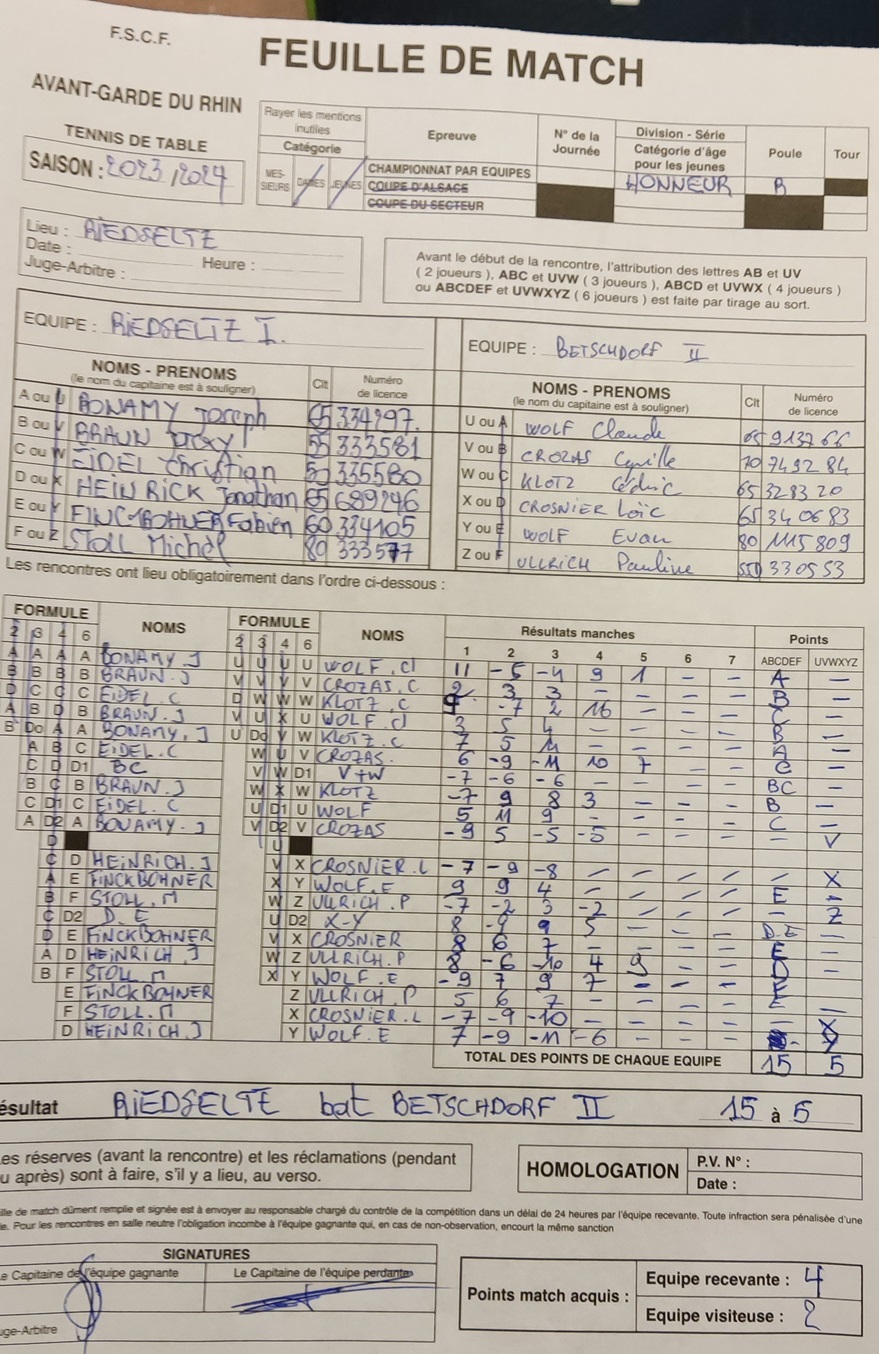 F.S.C.F.
FEUILLE DE MATCH
AVANT-GARDE DU RHIN
TENNIS DE TABLE
SAISON : 2023 / 2024
Rayer les mentions inutiles
Catégorie
MES-SIEURS DAMES JEUNES
Epreuve
CHAMPIONNAT PAR EQUIPES
COUPE D'ALSACE
COUPE DU SECTEUR
N° de la Journée
Division - Série
Catégorie d'âge pour les jeunes
HONNEUR
Poule
B
Tour
Lieu : RIEDSELTZ
Date :
Heure :
Juge-Arbitre :
Avant le début de la rencontre, l'attribution des lettres AB et UV
( 2 joueurs ), ABC et UVW ( 3 joueurs ), ABCD et UVWX ( 4 joueurs )
ou ABCDEF et UVWXYZ ( 6 joueurs ) est faite par tirage au sort.
EQUIPE : RIEDSELTZ I.
NOMS - PRENOMS
(le nom du capitaine est à souligner)
Clt
Numéro de licence
A ou U BONAMY Joseph 65 334297.
B ou V BRAUN 55 333581
C ou W EIDEL Christian 50 335580
D ou X HEINRICK Jonathan 65 689246
E ou Y FINCKBOHNER Fabien 60 334105
F ou Z STOLL Michel 80 333577
EQUIPE : BETSCHDORF II
NOMS - PRENOMS
(le nom du capitaine est à souligner)
Clt
Numéro de licence
U ou A WOLF Claude 65 913766
V ou B CROZAS Cyrille 70 749284
W ou C KLOTZ Cédric 65 328320
X ou D CROSNIER Loic 65 340683
Y ou E WOLF Evan 80 115809
Z ou F ULLRICH Pauline 55D 330553
Les rencontres ont lieu obligatoirement dans l'ordre ci-dessous :
FORMULE NOMS FORMULE NOMS Résultats manches Points
2 3 4 6 2 3 4 6 1 2 3 4 5 6 7 ABCDEF UVWXYZ
A A A A BONAMY.J U U U U WOLF.Cl 11 -5 -4 9 1 - - A -
B B B B BRAUN.J V V V V CROZAS.C 2 3 3 - - - - B -
D C C C EIDEL.C D W W W KLOTZ.C 9 -7 2 16 - - - C -
A B D B BRAUN.J V U X U WOLF.Cl 3 5 4 - - - - B -
B Do A A BONAMY.J U Do V W KLOTZ.C 7 5 11 - - - - A -
A B C EIDEL.C W U V CROZAS. 6 -9 -11 10 7 - - C -
C D D1 BC V W D1 V+W -7 -6 -6 - - - - BC -
B C B BRAUN.J W X W KLOTZ -7 9 8 3 - - - B -
C D1 C EIDEL.C U D1 U WOLF 5 11 9 - - - - C -
A D2 A BONAMY.J V D2 V CROZAS -9 5 -5 -5 - - - - V
D U
C D HEINRICH.J V X CROSNIER.L -7 -9 -8 - - - - - X
A E FINCKBOHNER X Y WOLF.E 9 9 4 - - - - E -
B F STOLL.M W Z ULLRICH.P -7 -2 3 -2 - - - - Z
C D2 D.E U D2 X-Y 8 -9 9 5 - - - D.E -
D E FINCKBOHNER V X CROSNIER 8 6 7 - - - - E -
A D HEINRICH.J W Z ULLRICH.P 8 -6 -10 4 9 - - D -
B F STOLL.M X Y WOLF.E -9 7 9 7 - - - F -
E FINCKBOHNER Z ULLRICH.P 5 6 7 - - - - E -
F STOLL.M X CROSNIER.L -7 -9 -10 - - - - - X
D HEINRICH.J Y WOLF.E 7 -9 -11 -6 - - - - Y
TOTAL DES POINTS DE CHAQUE EQUIPE 15 5
ésultat RIEDSELTZ bat BETSCHDORF II 15 à 5
es réserves (avant la rencontre) et les réclamations (pendant
u après) sont à faire, s'il y a lieu, au verso.
HOMOLOGATION
P.V. N° :
Date :
ille de match dûment remplie et signée est à envoyer au responsable chargé du contrôle de la compétition dans un délai de 24 heures par l'équipe recevante. Toute infraction sera pénalisée d'une
e. Pour les rencontres en salle neutre l'obligation incombe à l'équipe gagnante qui, en cas de non-observation, encourt la même sanction
SIGNATURES
e Capitaine de l'équipe gagnante
Le Capitaine de l'équipe perdante
uge-Arbitre
Points match acquis :
Equipe recevante : 4
Equipe visiteuse : 2